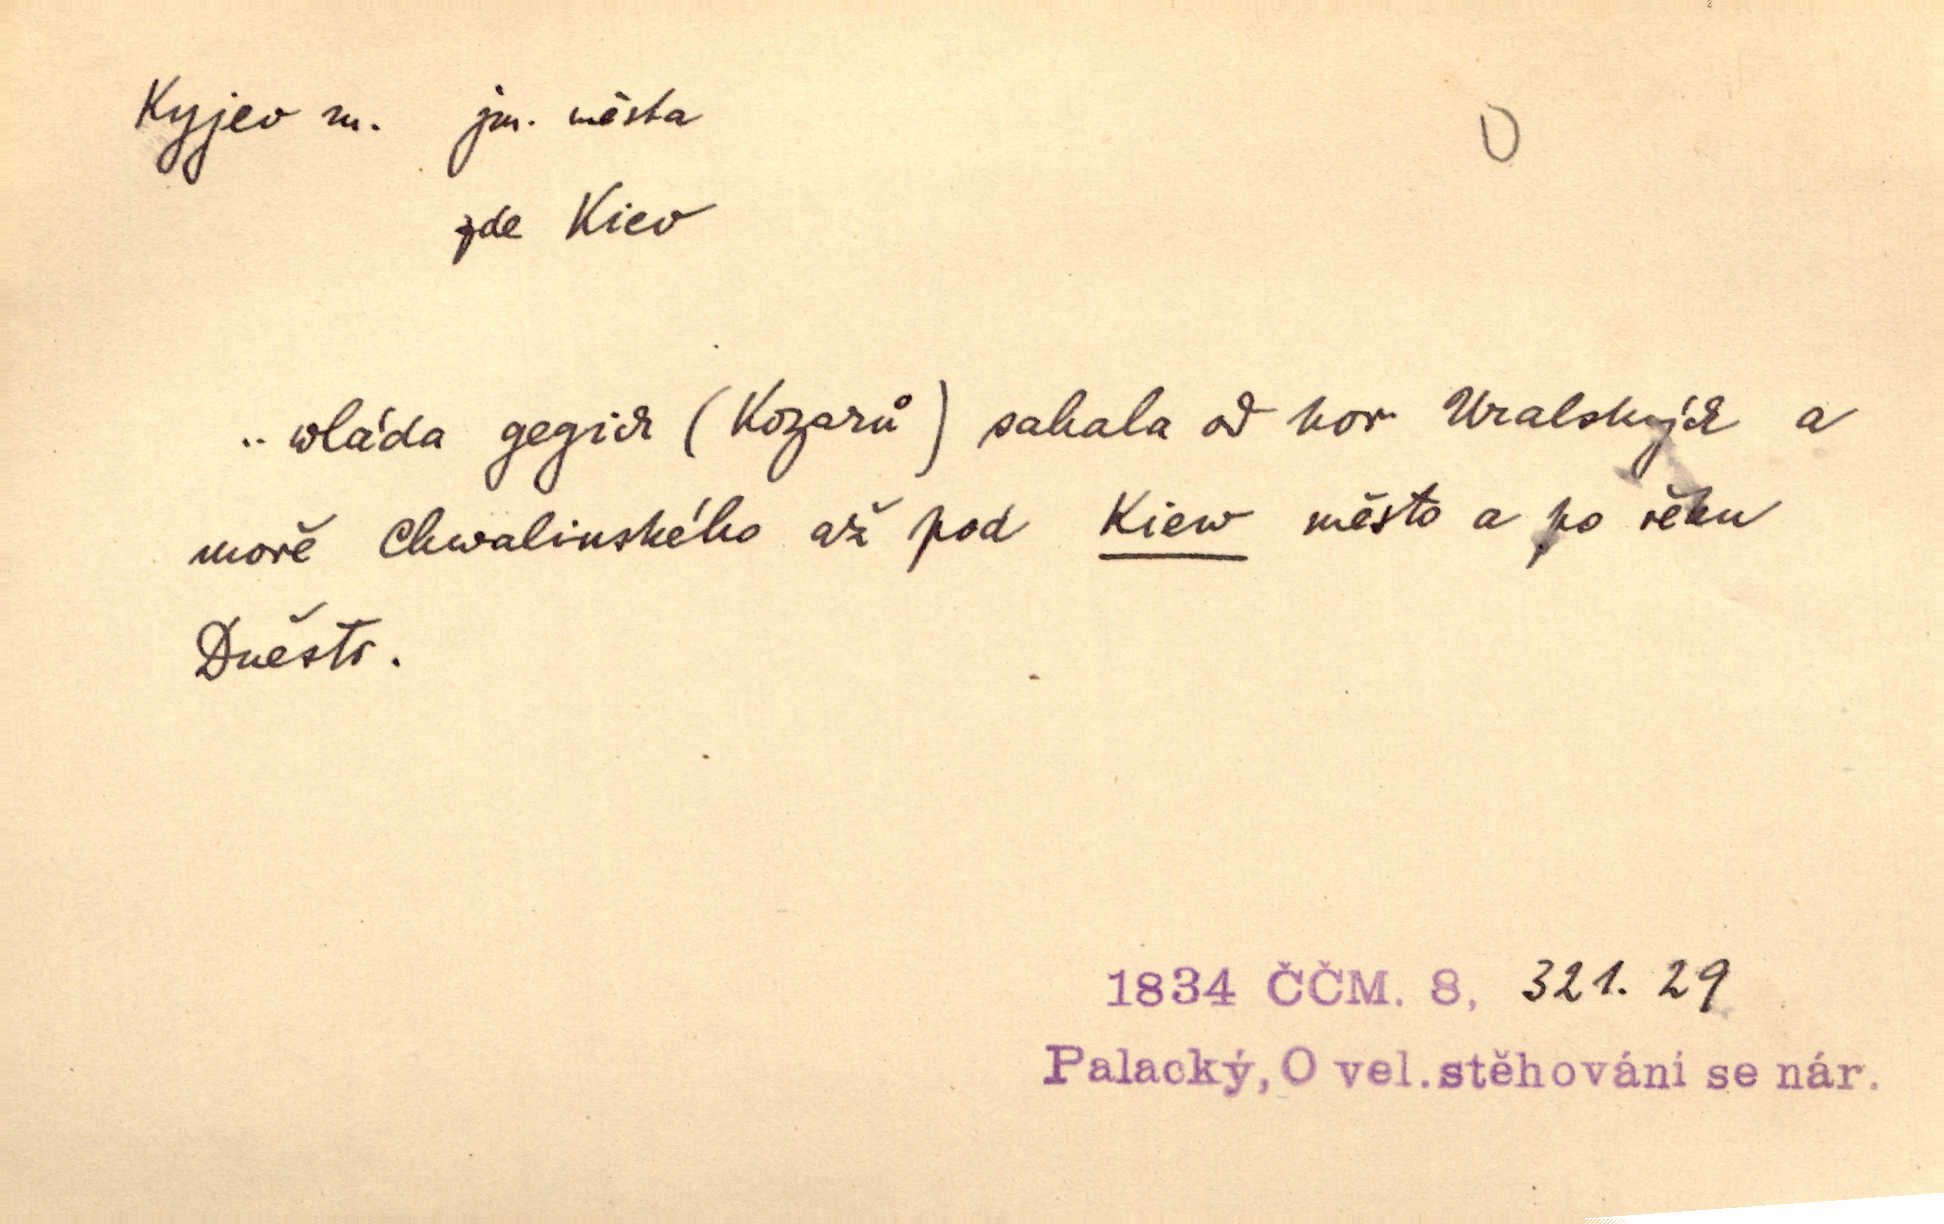 Kyjev m. jm. města
U
zde Kiev
.. wláda gegich (Kozarů) sahala od hor Uralských a
moře Chwalinského až pod Kiew město a po řěku
Dněstr.
1834 ČČM. 8, 321. 29
Palacký, O vel. stěhování se nár.